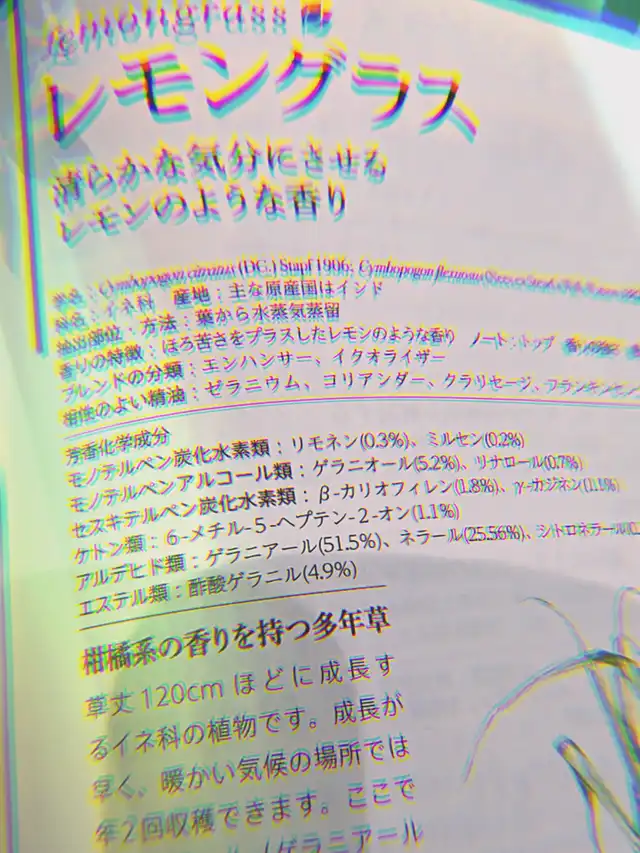 Lemongrass
レモングラス
清らかな気分にさせる
レモンのような香り
学名：Cymbopogon citratus (DC.) Stapf 1906; Cymbopogon flexuosus
科名：イネ科　産地：主な原産国はインド
抽出部位・方法：葉から水蒸気蒸留
香りの特徴：ほろ苦さをプラスしたレモンのような香り　ノート：トップ
ブレンドの分類：エンハンサー、イクオライザー
相性のよい精油：ゼラニウム、コリアンダー、クラリセージ、フランキンセンス
芳香化学成分
モノテルペン炭化水素類：リモネン(0.3%)、ミルセン(0.2%)
モノテルペンアルコール類：ゲラニオール(5.2%)、リナロール(0.7%)
セスキテルペン炭化水素類：β-カリオフィレン(1.8%)、γ-カジネン(1.1%)
ケトン類：6-メチル-5-ヘプテン-2-オン(1.1%)
アルデヒド類：ゲラニアール(51.5%)、ネラール(25.56%)、シトロネラール
エステル類：酢酸ゲラニル(4.9%)
柑橘系の香りを持つ多年草
草丈120cmほどに成長す
るイネ科の植物です。成長が
早く、暖かい気候の場所では
年2回収穫できます。ここで
ゲラニアール